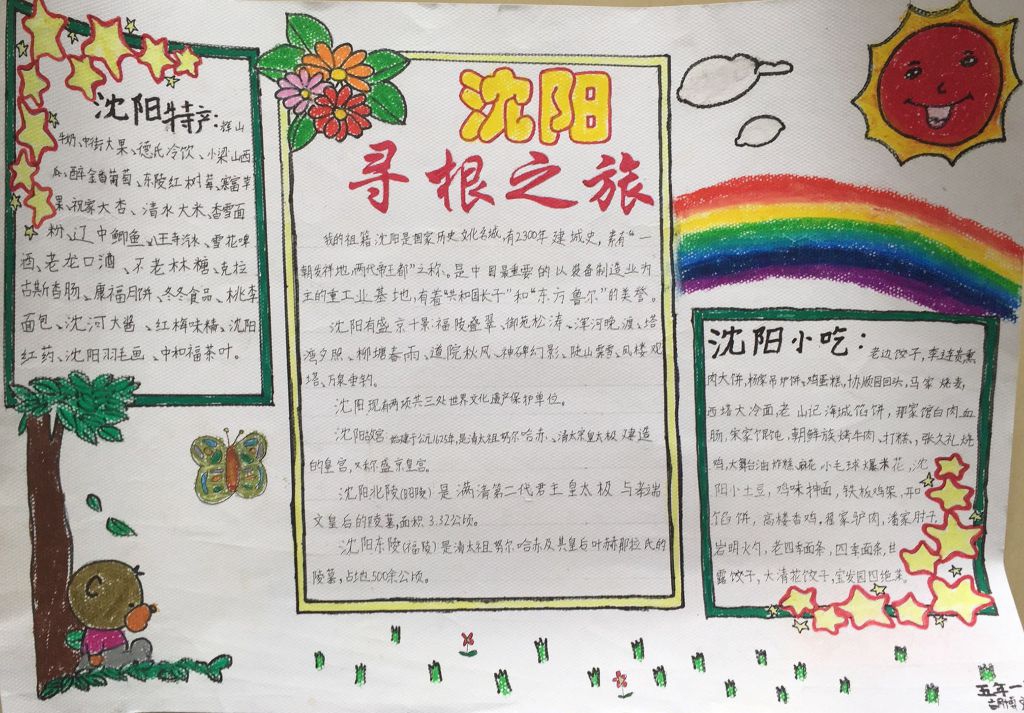 沈阳特产:辉山
牛奶、中街大果、德氏冷饮、小梁山西
瓜、醉金香葡萄、东陵红树莓、寒富苹
果、祝家大杏、清水大米、香雪面
粉、辽中鲫鱼、八王寺汽水、雪花啤
酒、老龙口酒、不老林糖、克拉
古斯香肠、康福月饼、冬冬食品、桃李
面包、沈河大酱、红梅味精、沈阳
红药、沈阳羽毛画、中和福茶叶。
沈阳
寻根之旅
我的祖籍沈阳是国家历史文化名城,有2300年建城史,素有“一
朝发祥地,两代帝王都”之称、是中国最重要的以装备制造业为
主的重工业基地,有着“共和国长子”和“东方鲁尔”的美誉。
沈阳有盛京十景:福陵叠翠、御苑松涛、浑河晚渡、塔
湾夕照、柳塘春雨、道院秋风、神碑幻影、陡山霁雪、凤楼观
塔、万泉垂钓。
沈阳现有两项共三处世界文化遗产保护单位。
沈阳故宫始建于公元1625年,是清太祖努尔哈赤、清太宗皇太极建造
的皇宫,又称盛京皇宫。
沈阳北陵(昭陵)是满清第二代君主皇太极与孝端
文皇后的陵墓,面积3.32公顷。
沈阳东陵(福陵)是清太祖努尔哈赤及其皇后叶赫那拉氏的
陵墓,占地500余公顷。
沈阳小吃:老边饺子,李连贵熏
肉大饼,杨家吊炉饼、鸡蛋糕,协顺园回头,马家烧麦,
西塔大冷面,老山记海城馅饼,那家馆白肉血
肠,宋家馄饨,朝鲜族烤牛肉、打糕,张久礼烧
鸡,大舞台油炸糕,麻花,小毛球爆米花,沈
阳小土豆,鸡味抻面,铁板鸡架,
馅饼,高楼香鸡,翟家驴肉,潘家肘子,
岩明火勺,老四季面条,四季面条,甘
露饺子,大清花饺子,宝发园四绝菜。
五年一